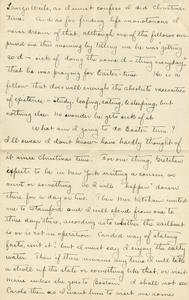 Lovey-Wele, as I must confess I did Christmas
time. And as for finding life monotonous I
never dream of that, although one of the fellows sur-
prised me this morning by telling me he was getting
so d— sick of doing the same d— thing everyday,
that he was praying for Easter-time. He is a
fellow that does well enough the absolute necessities
of existence — study, loafing, eating, sleeping, but
nothing else. No wonder he gets sick of it.
What am I going to do Easter time?
I'll swear I dont know — have hardly thought of
it since Christmas time. For one thing, Gretchen
expects to be in New York visiting a cousin or
aunt or something. So I will "happen" down
there for a day or two. Then Mrs. Kitchaw invited
me to and I will spend from one to
three days there, according as to whether the sailboat
is or is not in operation. Candid way of stating
facts, isn't it? but I must say I enjoy the salty
water. Then if there remains any time I will take
a stroll up the state or something like that, or visit
Mania unless she goes to Boston. I shall not see
Carola then as I want him to visit me some